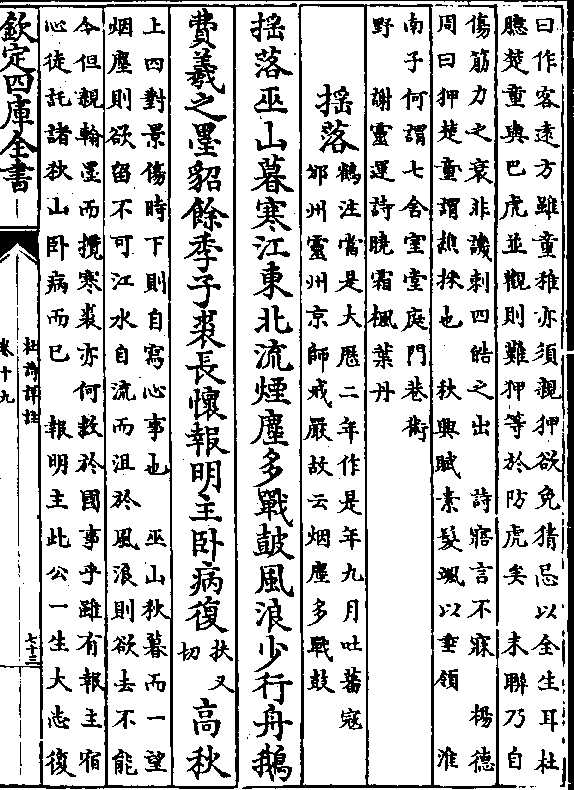 曰作客遠方雖童稚亦須親狎欲免猜忌以全生耳杜
臆楚童與巴虎並觀則難狎等於防虎矣　末聯乃自
傷筋力之衰非譏刺四皓之出　詩寤言不寐　楊德
周曰狎楚童謂樵採也　秋興賦素髮颯以垂領　淮
南子何謂七舍室堂庭門巷術
野　謝靈運詩曉霜楓葉丹
揺落鶴注當是大厯二年作是年九月吐蕃冦
邠州靈州京師戒嚴故云烟塵多戰鼓
揺落巫山暮寒江東北流煙塵多戰鼓風浪少行舟鵝
費羲之墨貂餘季子裘長懷報明主卧病復扶又切高秋
上四對景傷時下則自寫心事也　巫山秋暮而一望
烟塵則欲留不可江水自流而沮於風浪則欲去不能
今但親翰墨而攬寒裘亦何救於國事乎雖有報主宿
心徒託諸秋山卧病而已　報明主此公一生大志復
欽定四庫全書
杜詩詳註
卷十九
七十三